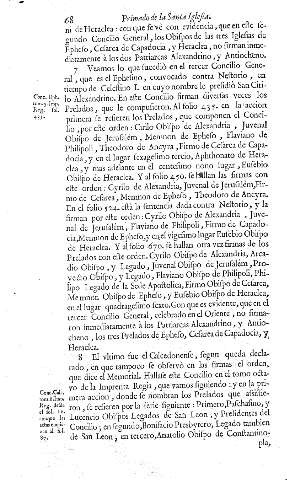 68 Primado de la Santa Iglesia.
ni de Heraclea: con que se vè con evidencia, que en este se-
gundo Concilio General, los Obispos de las tres Iglesias de
Epheso, Cesarea de Capadocia, y Heraclea, no firman inme-
diatamente à los dos Patriarcas Alexandrino, y Antiocheno.
7 Veamos lo que sucediò en el tercer Concilio Gene-
ral, que es el Ephesino, convocado contra Nestorio, en
tiempo de Celestino I. en cuyo nombre le presidiò San Ciri-
lo Alexandrino. En este Concilio firman diversas veces los
Prelados, que le compusieron. Al folio 435. en la accion
primera se refieren los Prelados, que componen el Conci-
lio, por este orden: Cyrilo Obispo de Alexandria, Juvenal
Obispo de Jerusalèm, Memnon de Epheso, Flaviano de
Philipoli, Theodoro de Ancyra, Firmo de Cesarea de Capa-
docia, y en el lugar sexagesimo tercio, Aphthonato de Hera-
clea, y mas adelante en el centesimo nono lugar, Eusebio
Obispo de Heraclea. Y al folio 450. se hallan las firmas con
este orden: Cyrilo de Alexandria, Juvenal de Jerusalèm, Fir-
mo de Cesarea, Memnon de Epheso, Theodoro de Ancyra.
En el folio 524. està la sentencia dada contra Nestorio, y la
firman por este orden: Cyrilo Obispo de Alexandria, Juve-
nal de Jerusalèm, Flaviano de Philipoli, Firmo de Capado-
cia, Memnon de Epheso, y en el vigesimo lugar Eusebio Obispo
de Heraclea. Y al folio 670. se hallan otra vez firmas de los
Prelados con este orden: Cyrilo Obispo de Alexandria, Arca-
dio Obispo, y Legado, Juvenal Obispo de Jerusalèm, Pro-
yecto Obispo, y Legado, Flaviano Obispo de Philipoli, Phi-
lipo Legado de la Sede Apostolica, Firmo Obispo de Cesarea,
Memnon Obispo de Epheso, y Eusebio Obispo de Heraclea,
en el lugar quadragesimo sexto. Con que es evidente, que en el
tercer Concilio General, celebrado en el Oriente, no firma-
ron immediatamente à los Patriarcas Alexandrino, y Antio-
cheno, los tres Prelados de Epheso, Cesarea de Capadocia, y
Heraclea.
8 El ultimo fue el Calcedonense, segun queda decla-
rado, en que tampoco se observò en las firmas el orden,
que dice el Memorial. Hallase este Concilio en el tomo octa-
vo de la Imprenta Regia, que vamos siguiendo: y en la pri-
mera accion, donde se nombran los Prelados que assistie-
ron, se refieren por la serie siguiente: Primero, Paschasino, y
Lucencio Obispos Legados de San Leon, y Presidentes del
Concilio; en segundo, Bonifacio Presbytero, Legado tambien
de San Leon, en tercero, Anatolio Obispo de Constantino-
pla,
Reg. fol.
435.